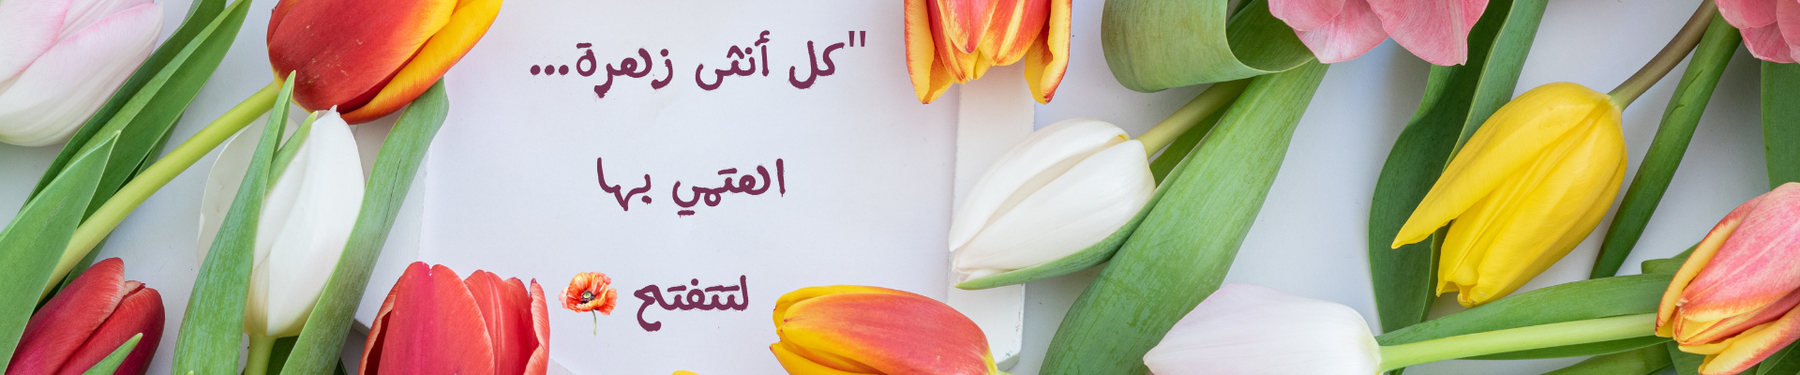 "كل أنثى زهرة...
اهتمي بها
لتتفتح